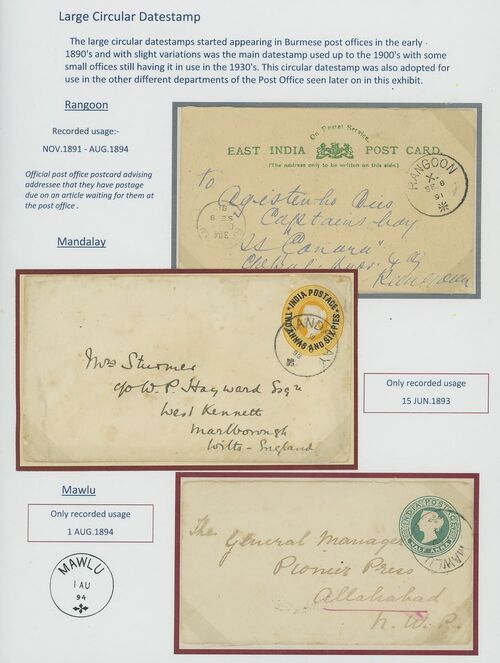 Large Circular Datestamp
The large circular datestamps started appearing in Burmese post offices in the early
1890's and with slight variations was the main datestamp used up to the 1900's with some
small offices still having it in use in the 1930's. This circular datestamp was also adopted for
use in the other different departments of the Post Office seen later on in this exhibit.
Rangoon
Recorded usage:-
NOV.1891 - AUG.1894
Official post office postcard advising
addressee that they have postage
due on an article waiting for them at
the post office .
On Postal Service.
EAST INDIA POST CARD.
(The address only to be written on this side.)
RANGOON
To
Captains boy
SS "Canara"
Rangoon
Mandalay
INDIA POSTAGE
TWO ANNAS AND SIX PIES
Mrs Sturmer
c/o W. P. Hayward Esqre
West Kennett
Marlborough
Wilts - England
Only recorded usage
15 JUN.1893
Mawlu
Only recorded usage
1 AUG.1894
MAWLU
1 AU
94
INDIA POSTAGE
HALF ANNA
MAWLU
The General Manager
Pionier Press
Allahabad
N. W. P.